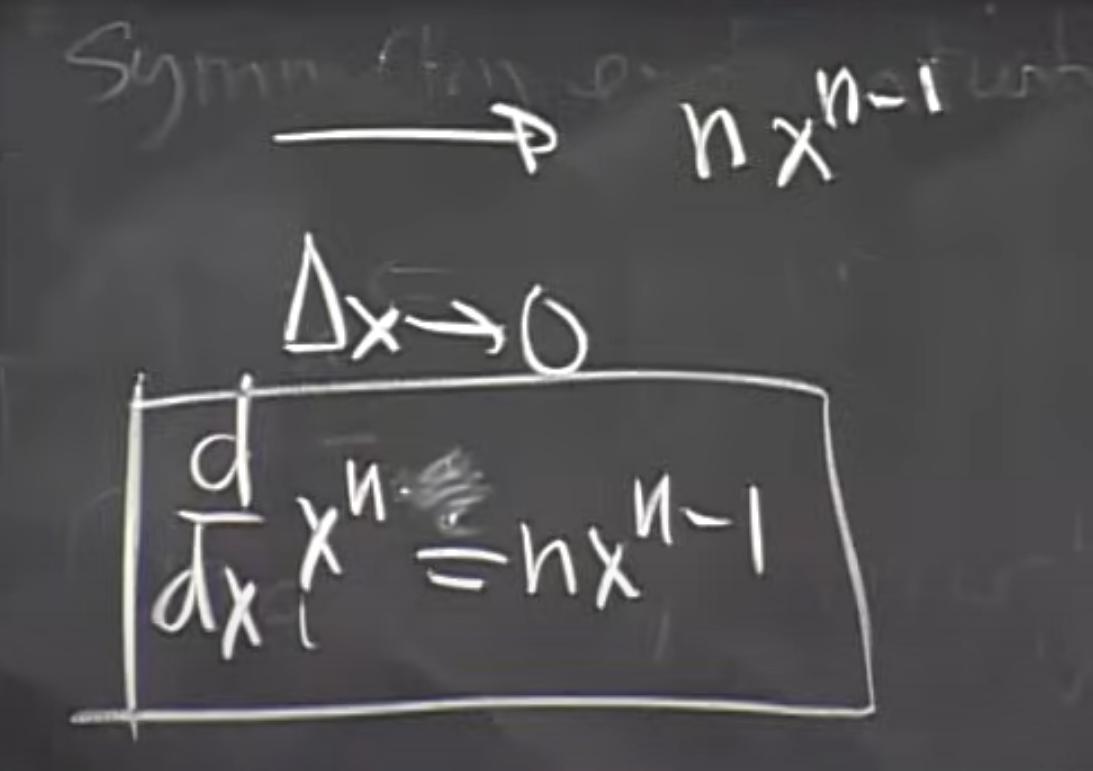 ⟶ nxⁿ⁻¹
Δx→0
d/dx xⁿ = nxⁿ⁻¹